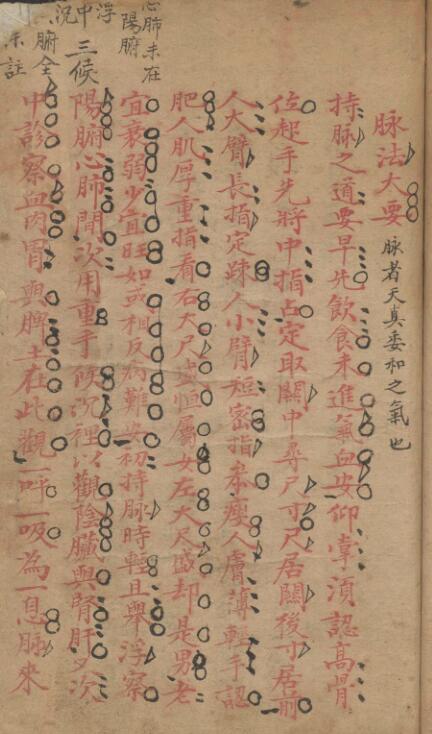 脉法大要
脉者天真委和之氣也
持脉之道要早先飲食未進氣血安仰掌須認高骨
位起手先將中指占定取關中尋尺寸尺居關後寸居前
人大臂長指定疎人小臂短密指排瘦人膚薄輕手認
肥人肌厚重指看右大尺盛恒屬女左大尺盛却是男老
宜衰弱少宜旺如或相反病難安初持脉時輕且舉浮察
陽腑心肺間次用重手候沉裡以觀陰臟與腎肝又次
中診察血肉胃與脾土在此觀一呼一吸為一息脉來
心肺未在
陽腑
浮
中
沉
三候
腑全
未註